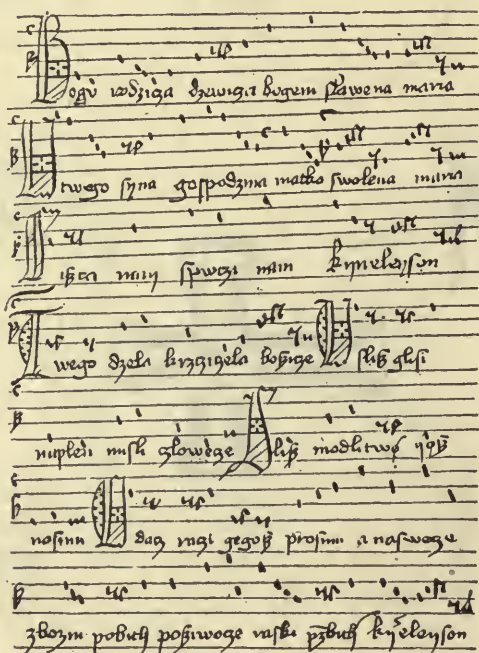 Bogu rodzicza dzewicza bogem slawena maria
U twego syna gospodzina matko swolena maria
Ziszcza nam spwczi nam kyrieleyson
Twego dzela krzcziczela boszicze Uslisz glosi
naplen misli czlowecze slisz modlitwo yosz
nosimi O dacz raczi gegosz prosimi a naswecze
zbozni pobith poszwocze raski przebith kyeleyson